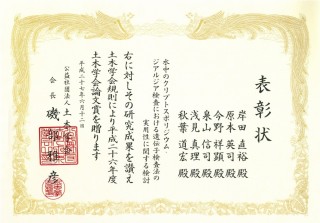 表彰状
岸田 直裕 殿
原本 英司 殿
今野 祥顕 殿
泉山 信司 殿
浅見 真理 殿
秋葉 道宏 殿
水中のクリプトスポリジウム
ジアルジア検査における遺伝子検査法の
実用性に関する検討
右に対しその研究成果を讃え
土木学会規則により平成二十六年度
土木学会論文賞を贈ります
平成二十七年六月十二日
公益社団法人 土木学会
会長 磯部雅彦